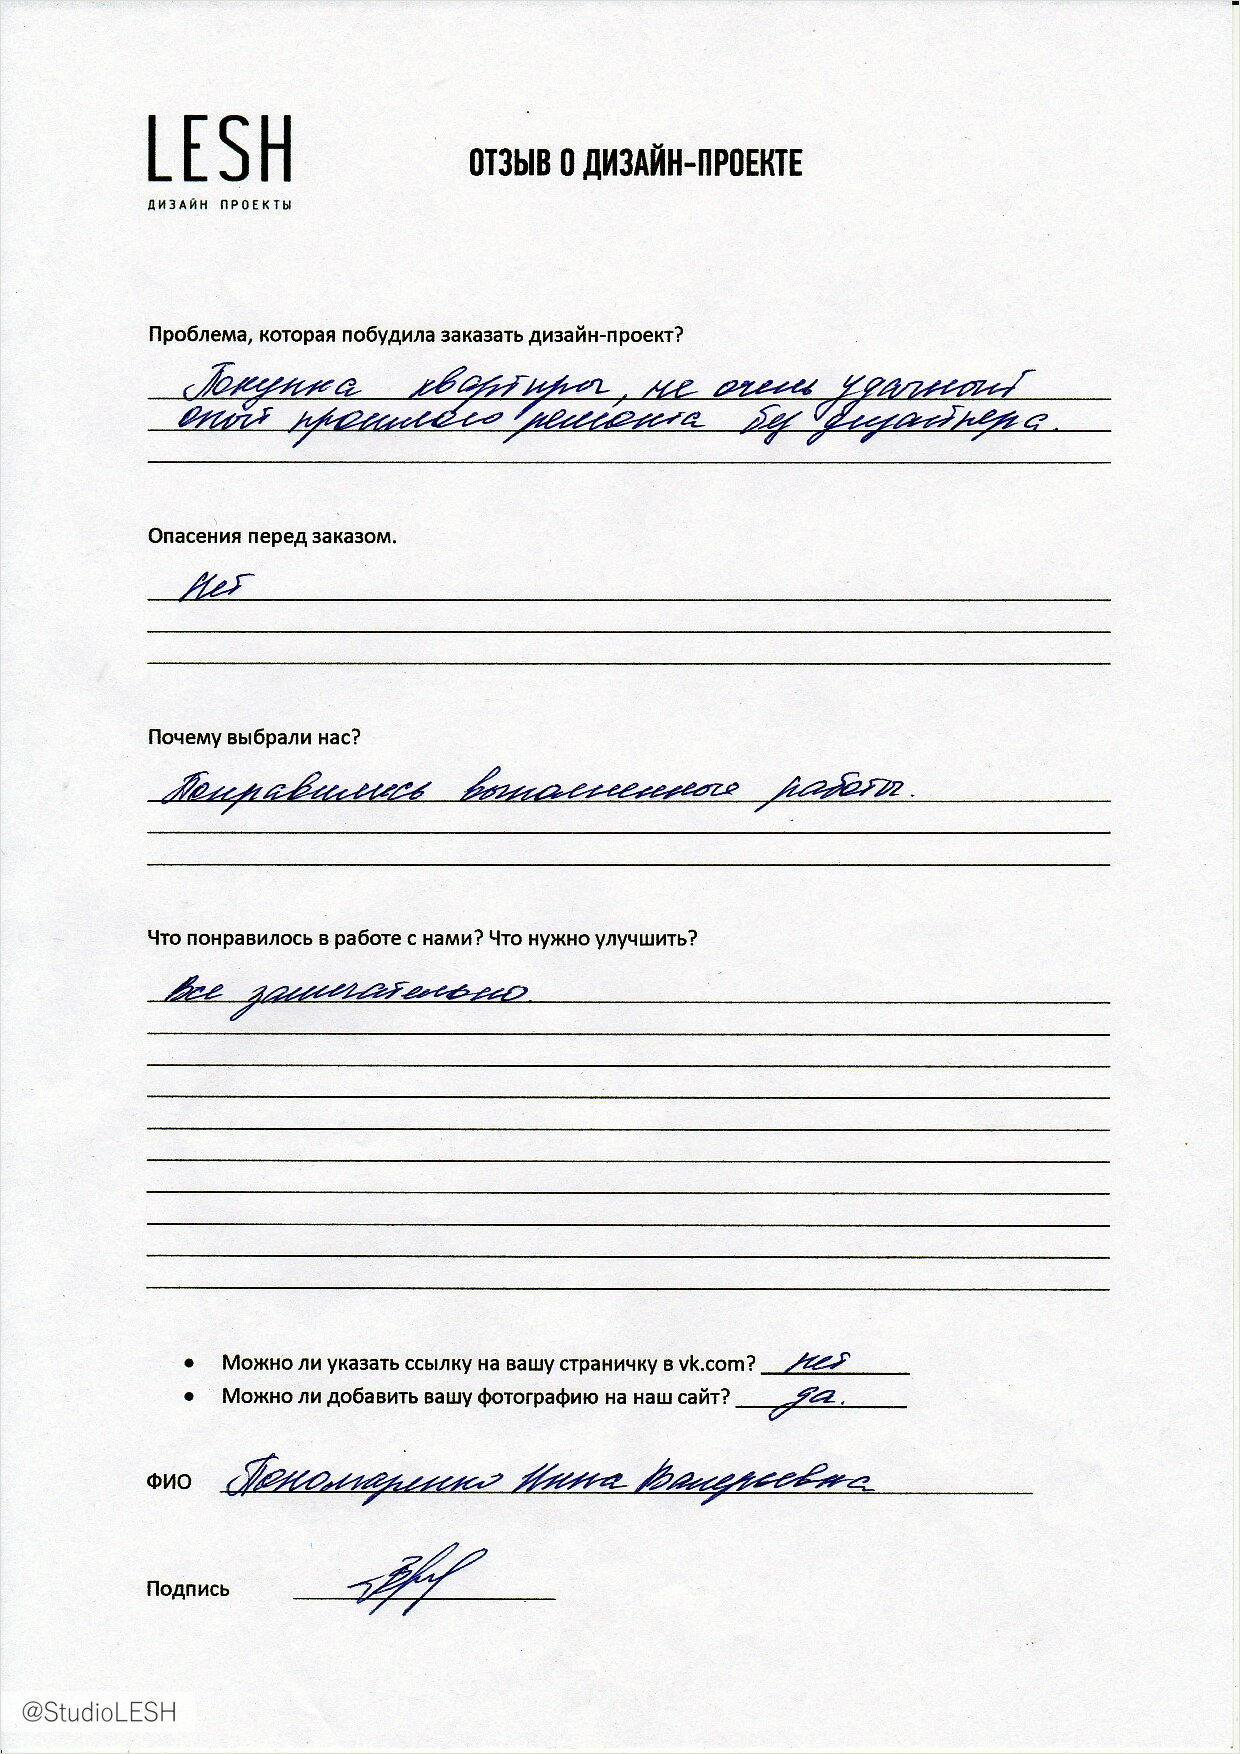 LESH
ДИЗАЙН ПРОЕКТЫ
ОТЗЫВ О ДИЗАЙН-ПРОЕКТЕ
Проблема, которая побудила заказать дизайн-проект?
Покупка квартиры, не очень удачный
опыт прошлого ремонта без дизайнера.
Опасения перед заказом.
Нет
Почему выбрали нас?
Понравились выполненные работы.
Что понравилось в работе с нами? Что нужно улучшить?
Все замечательно.
• Можно ли указать ссылку на вашу страничку в vk.com? нет
• Можно ли добавить вашу фотографию на наш сайт? да.
ФИО Пономаренко Инна Валерьевна
Подпись
@StudioLESH